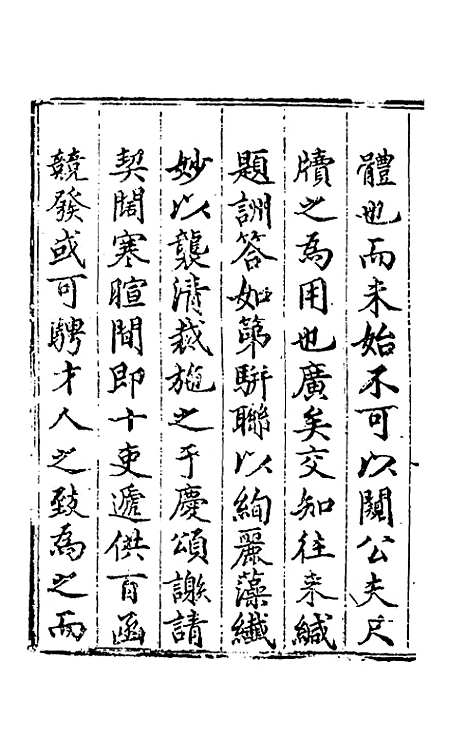 體也而未始不可以關公夫尺
牘之為用也廣矣交知往来緘
題訓答如第駢聯以絢麗藻纖
妙以襲清裁施之于慶頌謝請
契闊寒暄間即十吏遞供百函
競發或可騁才人之致為之而